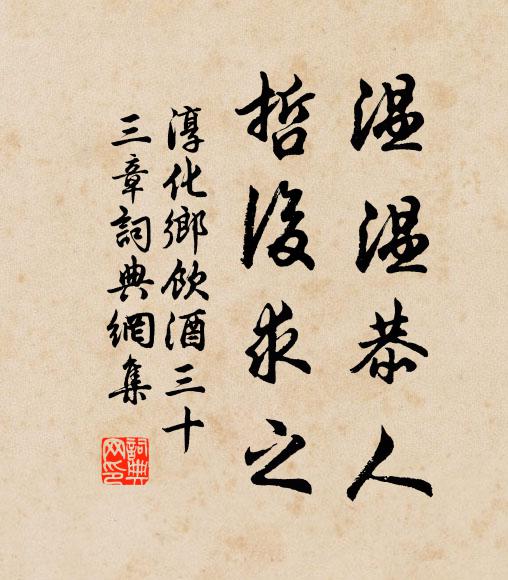 溫溫恭人
哲後求之
淳化鄉飲酒三十
三章詞典網集
詞典
网印